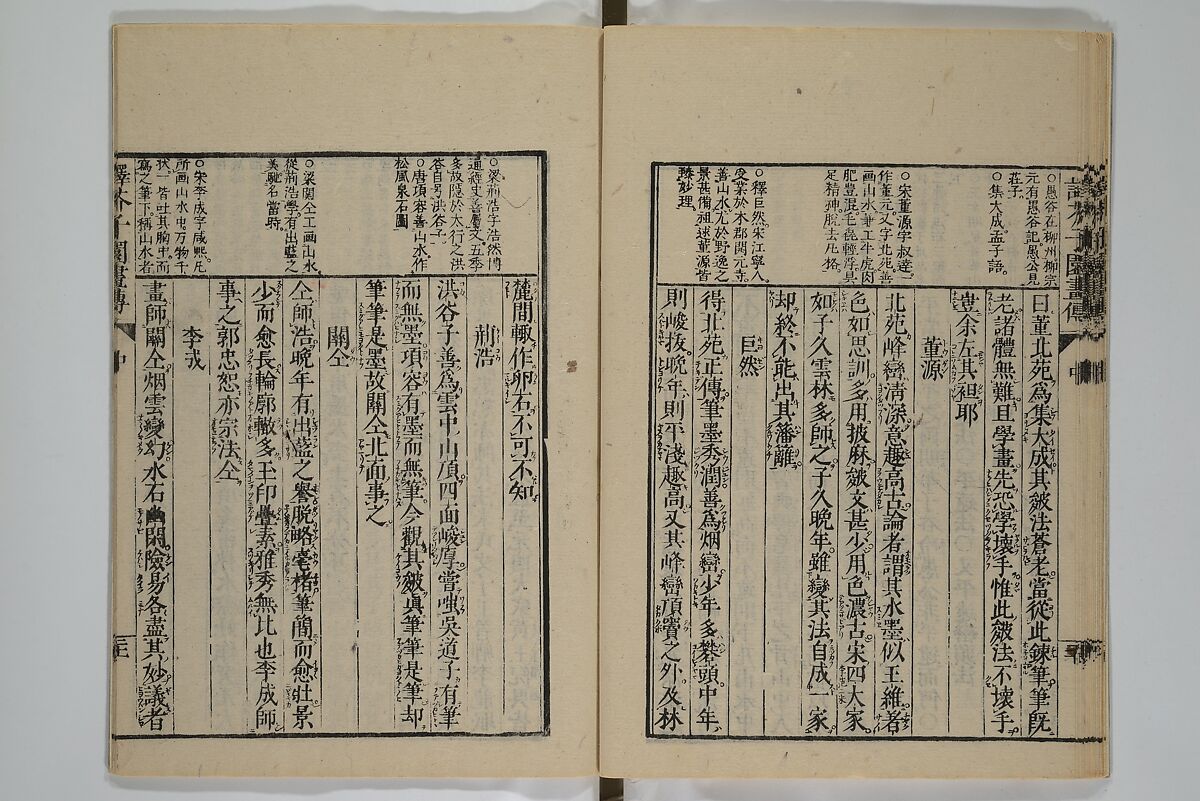 ○愚谷在柳州柳宗
元有愚谷記愚公見
莊子
○集大成孟子語
○宋董源字叔達
作董元又字北苑善
画山水兼工牛虎肉
肥豊混毛毳輕浮具
足精神脱去凡格
○釋巨然宋江寧人
受業於本郡開元寺
善山水尤於野逸之
景甚備祖述董源皆
臻妙理
曰董北苑爲集大成其皴法蒼老當從此鍊筆筆既
老諸體無難且學畫先恐學壞手惟此皴法不壞手
豈余左其袒耶
董源
北苑峰巒淸深意趣高古論者謂其水墨似王維著
色如思訓多用披麻皴文甚少用色濃古宋四大家
如子久雲林多師之子久晩年雖變其法自成一家
却終不能出其藩籬
巨然
得北苑正傳筆墨秀潤善爲烟巒少年多礬頭中年
則峻拔晩年則平淺趣高又其峰巒頂竇之外及林
○梁荊浩字浩然博
通經史善屬文五季
多故隱於太行之洪
谷自号洪谷子
○唐項容善山水作
松風泉石圖
○梁關仝工画山水
從荊浩學有出藍之
美馳名當時
○宋李成字咸熙凡
所画山水中万物千
状一皆吐其胸中而
寫之筆下稱山水者
麓間輙作卵石不可不知
荊浩
洪谷子善爲雲中山頂四面峻厚嘗嗤吳道子有筆
而無墨項容有墨而無筆今觀其皴眞筆筆是筆却
筆筆是墨故關仝北面事之
關仝
仝師浩晩年有出藍之譽脱略毫楮筆簡而愈壯景
少而愈長輪廓轍多王印疊素雅秀無比也李成師
事之郭忠恕亦宗法仝
李成
畫師關仝烟雲變幻水石幽閑險易各盡其妙議者
譯芥子園畫傳
中